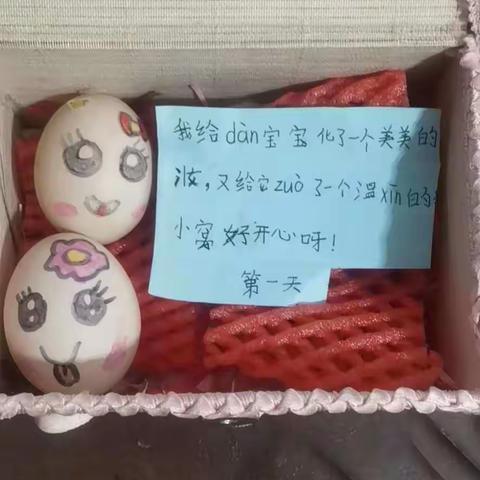 我给dàn宝宝化了一个美美的
妆，又给它zuò了一个温xīn的
小窝好开心呀！
第一天